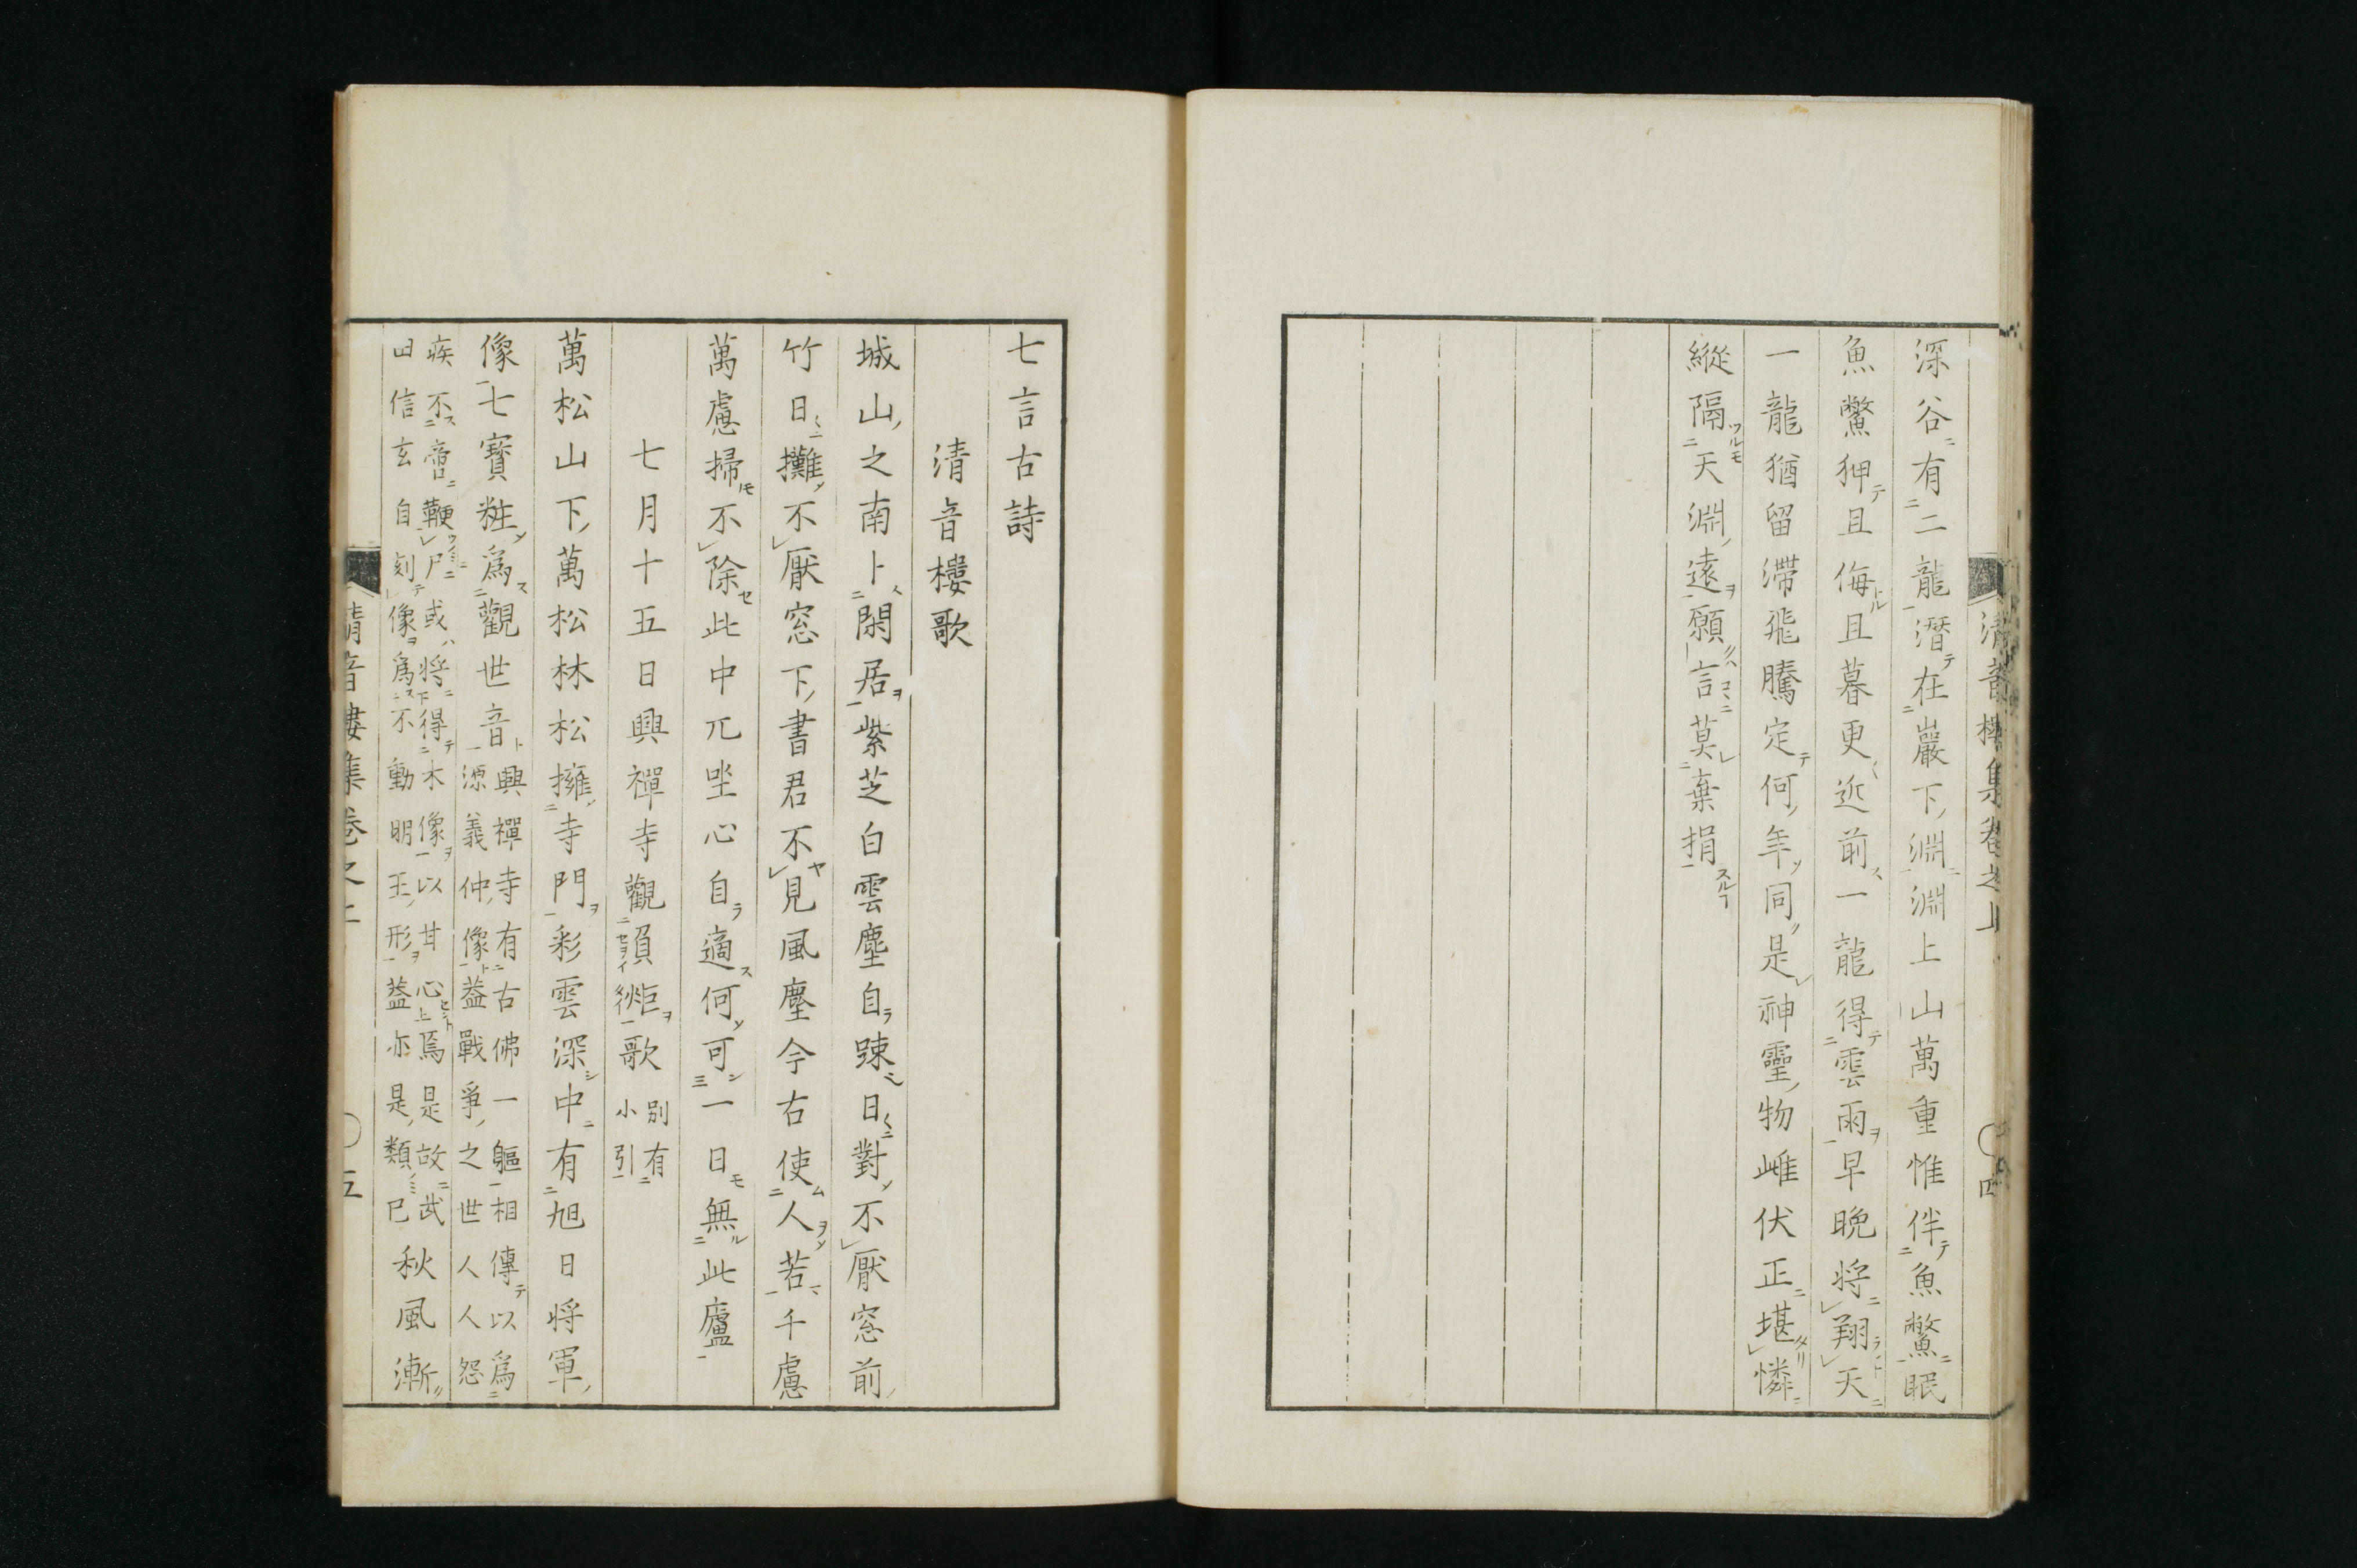 深谷有二龍潛在巖下淵淵上山萬重惟伴魚鱉眠
魚鱉狎且侮且暮更近前一龍得雲雨早晩將翔天
一龍猶留滯飛騰定何年同是神靈物雌伏正堪憐
縱隔天淵遠願言莫棄捐
清音樓集卷之上
四
七言古詩
清音樓歌
城山之南卜閑居紫芝白雲塵自踈日對不厭窓前
竹日攤不厭窓下書君不見風塵今右使人若千慮
萬慮掃不除此中兀坐心自適何可一日無此廬
七月十五日興禪寺觀負𢓜歌別有
小引
萬松山下萬松林松擁寺門彩雲深中有旭日将軍
像七寶粧爲觀世音興禪寺有古佛一軀相傳以爲
源義仲像葢戰爭之世人人怨
疾不啻鞭尸或将得木像以甘心焉是故武
田信玄自刻像爲不動明王形葢亦是類已
秋風漸
清音樓集卷之上
五